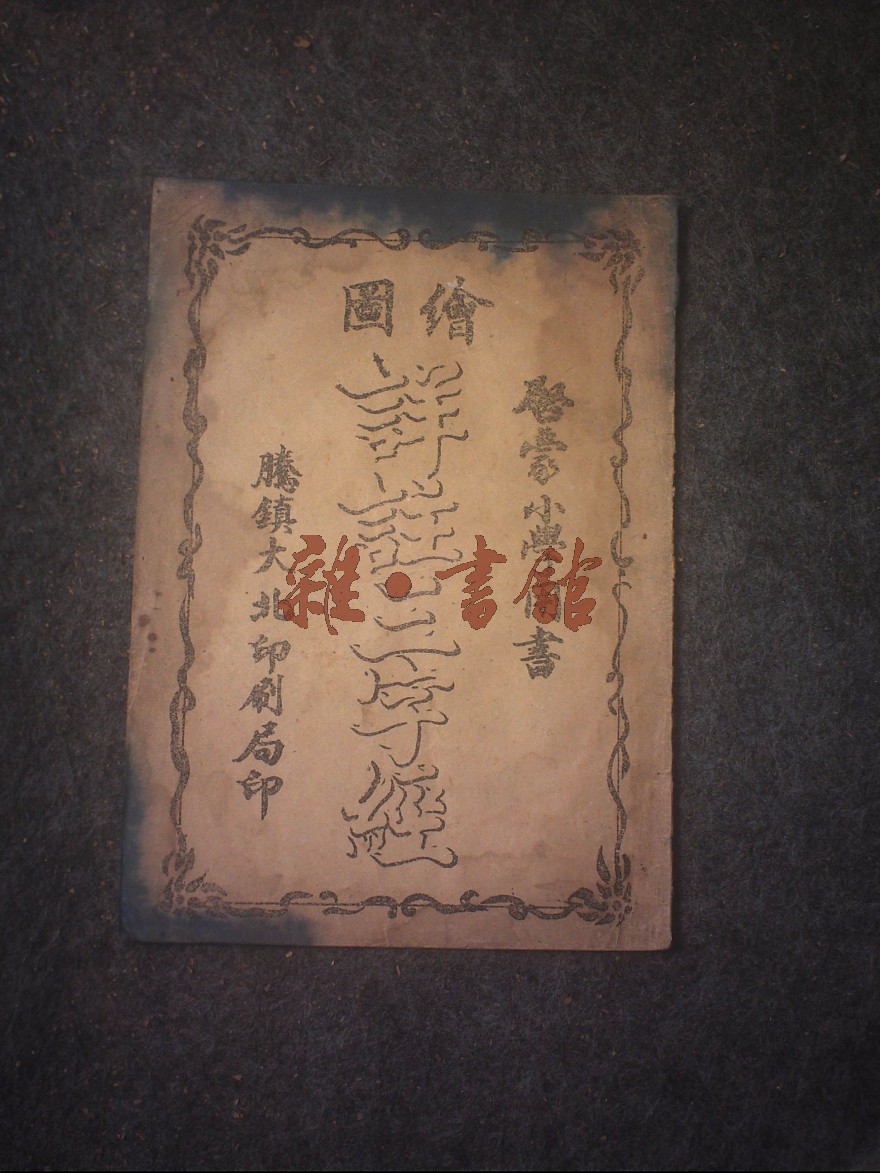 繪圖
啓蒙小學圖書
詳註三字經
騰鎮大北印刷局印
雜•書館